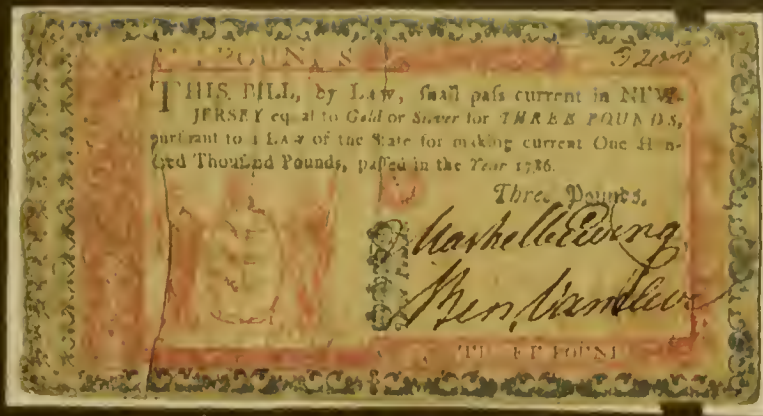 POUNDS
THIS BILL, by LAW, ſhall paſs current in NEW-
JERSEY equal to Gold or Silver for THREE POUNDS,
purſuant to a LAW of the State for making current One Hun-
dred Thouſand Pounds, paſſed in the Year 1786.
Three Pounds.
Maskell Ewing
Ben. Vancleve
THREE POUND